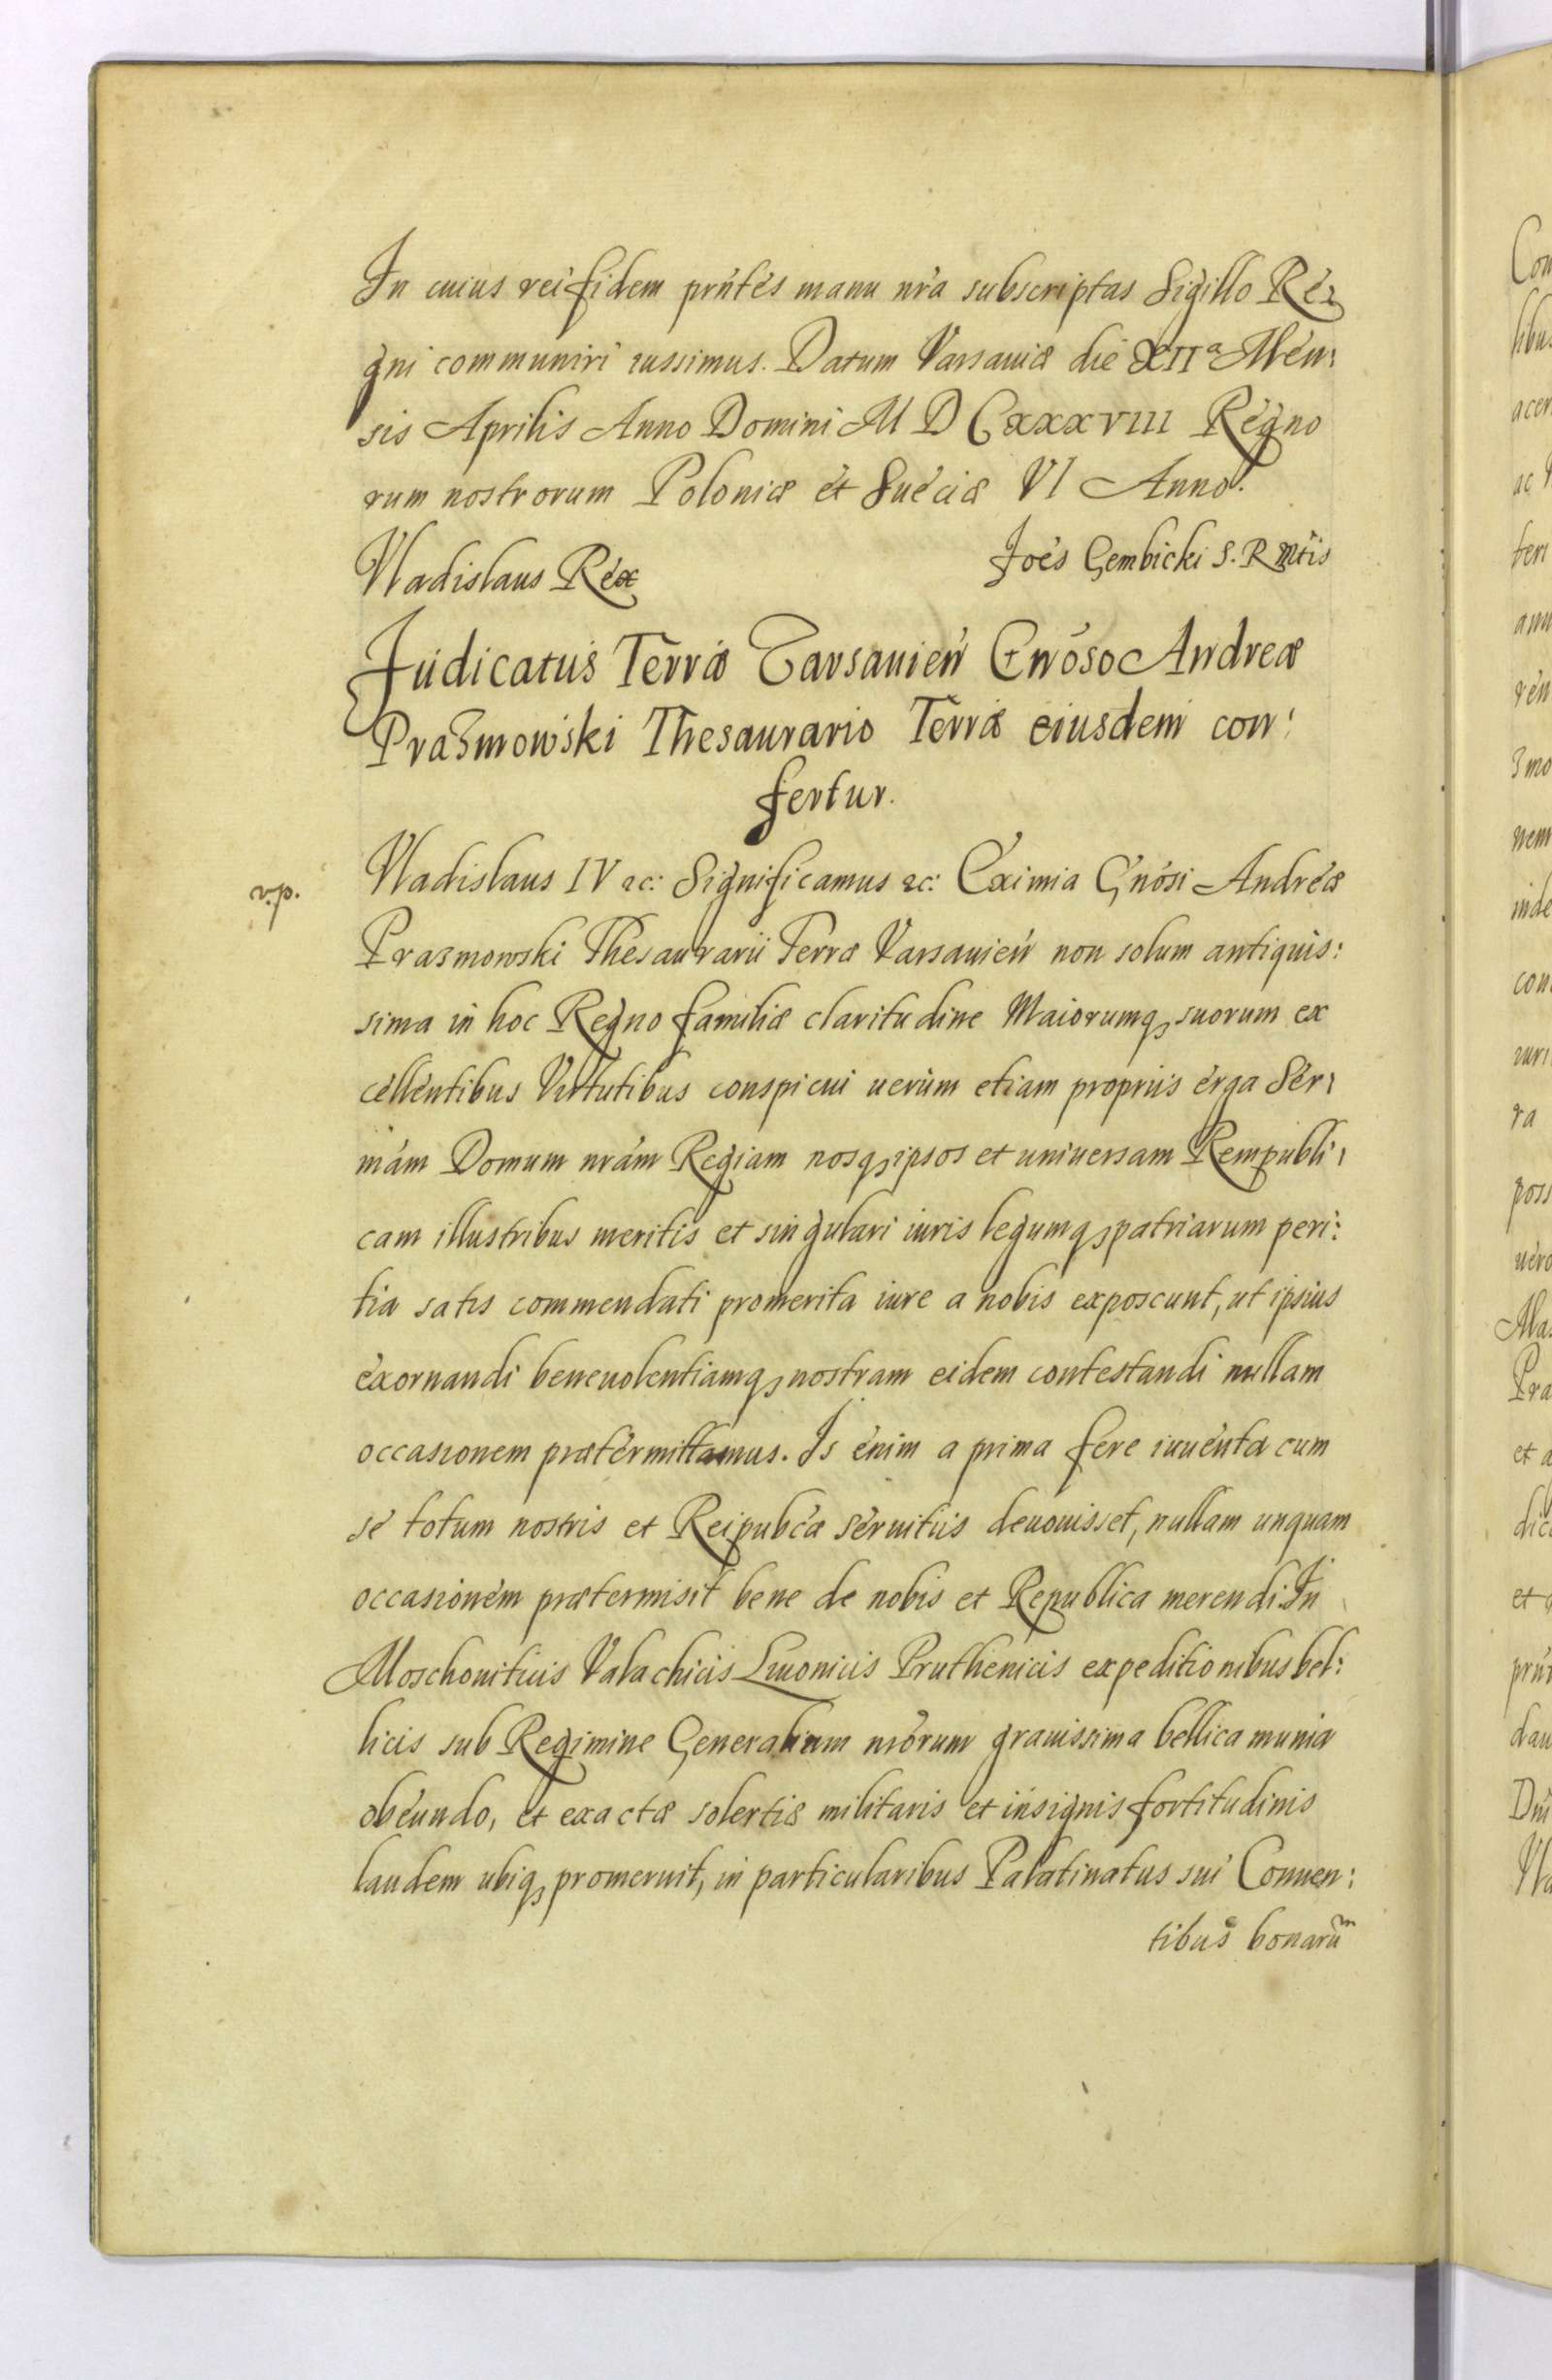 In cuius rei fidem prńtes manu nra subscriptas Sigillo Re
gni communiri iussimus. Datum Varsauiæ die XIIa Men:
sis Aprilis Anno Domini M D CXXXVIII Regno
rum nostrorum Poloniæ et Sueciæ VI Anno.
Vladislaus Rex
Joes Gembicki S. R Mtis
Judicatus Terræ Varsauień Gnoso Andreæ
Prazmowski Thesaurario Terræ eiusdem con:
fertur.
v.p.
Vladislaus IV ac: Significamus ac: Eximia Gnosi Andreæ
Prazmowski Thesaurarii Terræ Varsauień non solum antiquis:
sima in hoc Regno familiæ claritudine Maiorumq suorum ex
cellentibus Virtutibus conspicui uerum etiam propriis erga Ser:
mam Domum nram Regiam nosq ipsos et uniuersam Rempubli:
cam illustribus meritis et singulari iuris legumq patriarum peri:
tia satis commendati promerita iure a nobis exposcunt, ut ipsius
exornandi beneuolentiamq nostram eidem contestandi nullam
occasionem prætermittamus. Is enim a prima fere iuuenta cum
se totum nostris et Reipubcæ seruitiis deuouisset, nullam unquam
occasionem prætermisit bene de nobis et Republica merendi. In
Moschouiticis Valachicis Liuonicis Pruthenicis expeditionibus bel:
licis sub Regimine Generalium nrorum grauissima bellica munia
obeundo, et exactæ solertiæ militaris et insignis fortitudinis
laudem ubiq promeruit, in particularibus Palatinatus sui Conuen:
tibus bonarum